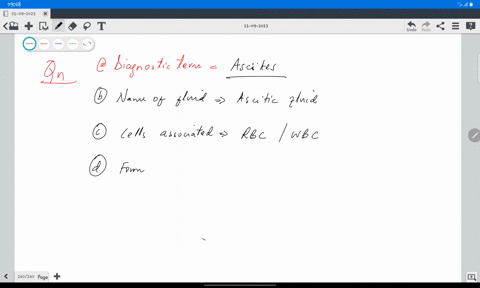 09:48
21-09-2023
21-09-2023
Undo Redo
Qn @ Diagnostic term = Ascites
(b) Name of fluid ⇒ Ascitic fluid
(c) Cells associated ⇒ RBC / WBC
(d) Form
240/240 Page